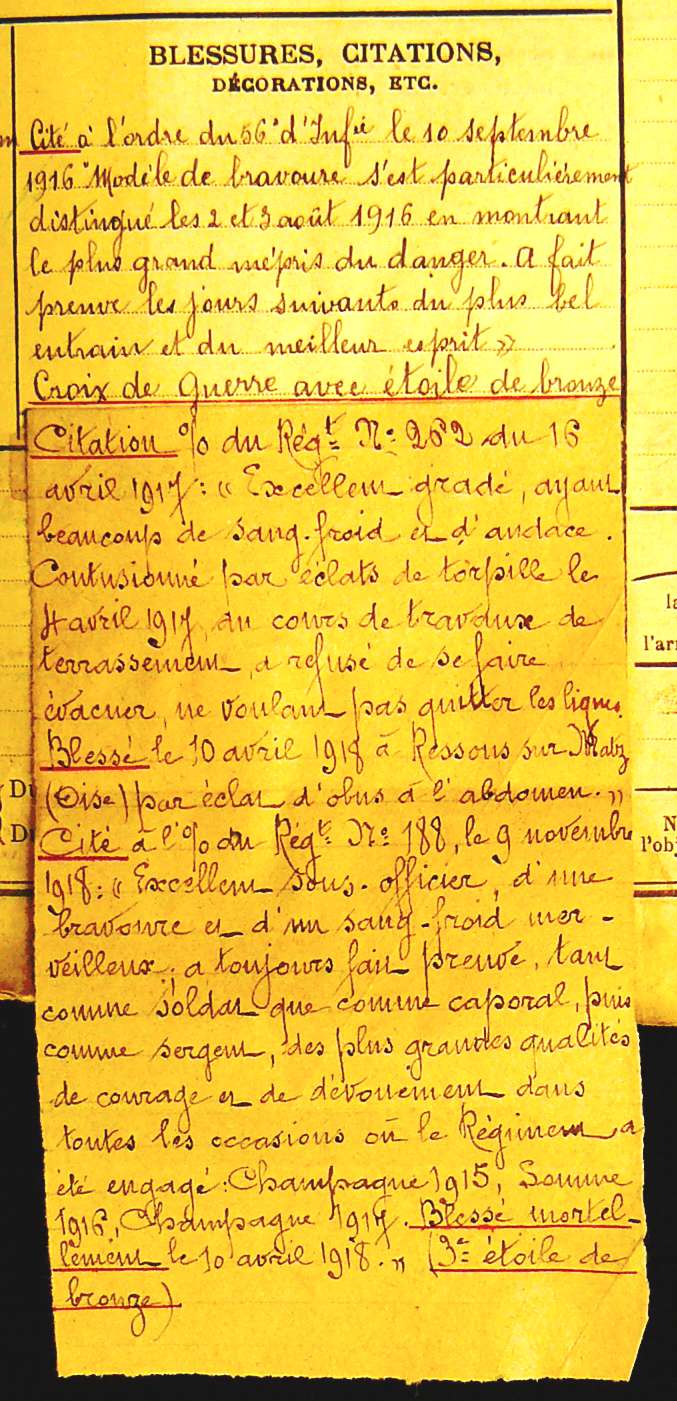 BLESSURES, CITATIONS,
DÉCORATIONS, ETC.
Cité à l'ordre du 56e d'Infie le 10 septembre
1916 "Modèle de bravoure s'est particulièrement
distingué les 2 et 3 août 1916 en montrant
le plus grand mépris du danger. A fait
preuve les jours suivants du plus bel
entrain et du meilleur esprit »
Croix de Guerre avec étoile de bronze
Citation % du Régt No 262 du 16
avril 1917 : « Excellent gradé, ayant
beaucoup de sang-froid et d'audace.
Contusionné par éclats de torpille le
4 avril 1917, au cours de travaux de
terrassement, a refusé de se faire
évacuer, ne voulant pas quitter les lignes.
Blessé le 10 avril 1918 à Ressons sur Matz
(Oise) par éclat d'obus à l'abdomen. »
Cité à l'% du Régt No 188, le 9 novembre
1918 : « Excellent sous-officier, d'une
bravoure et d'un sang-froid mer-
veilleux ; a toujours fait preuve, tant
comme soldat que comme caporal, puis
comme sergent, des plus grandes qualités
de courage et de dévouement dans
toutes les occasions où le Régiment a
été engagé : Champagne 1915, Somme
1916, Champagne 1917. Blessé mortel-
lement le 10 avril 1918. » (3e étoile de
bronze)
la
l'arm
Du
Du
N
l'obj